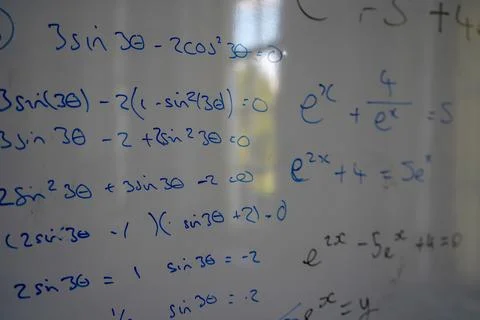 3sin 3θ - 2cos² 3θ = 0
3sin(3θ) - 2(1 - sin²(3θ)) = 0
3sin 3θ - 2 + 2sin² 3θ = 0
2sin² 3θ + 3sin 3θ - 2 = 0
(2sin 3θ - 1)(sin 3θ + 2) = 0
2sin 3θ = 1 sin 3θ = -2
sin 3θ = -2
-5 + 4
e^x + 4/e^x = 5
e^2x + 4 = 5e^x
e^2x - 5e^x + 4 = 0
e^x = y